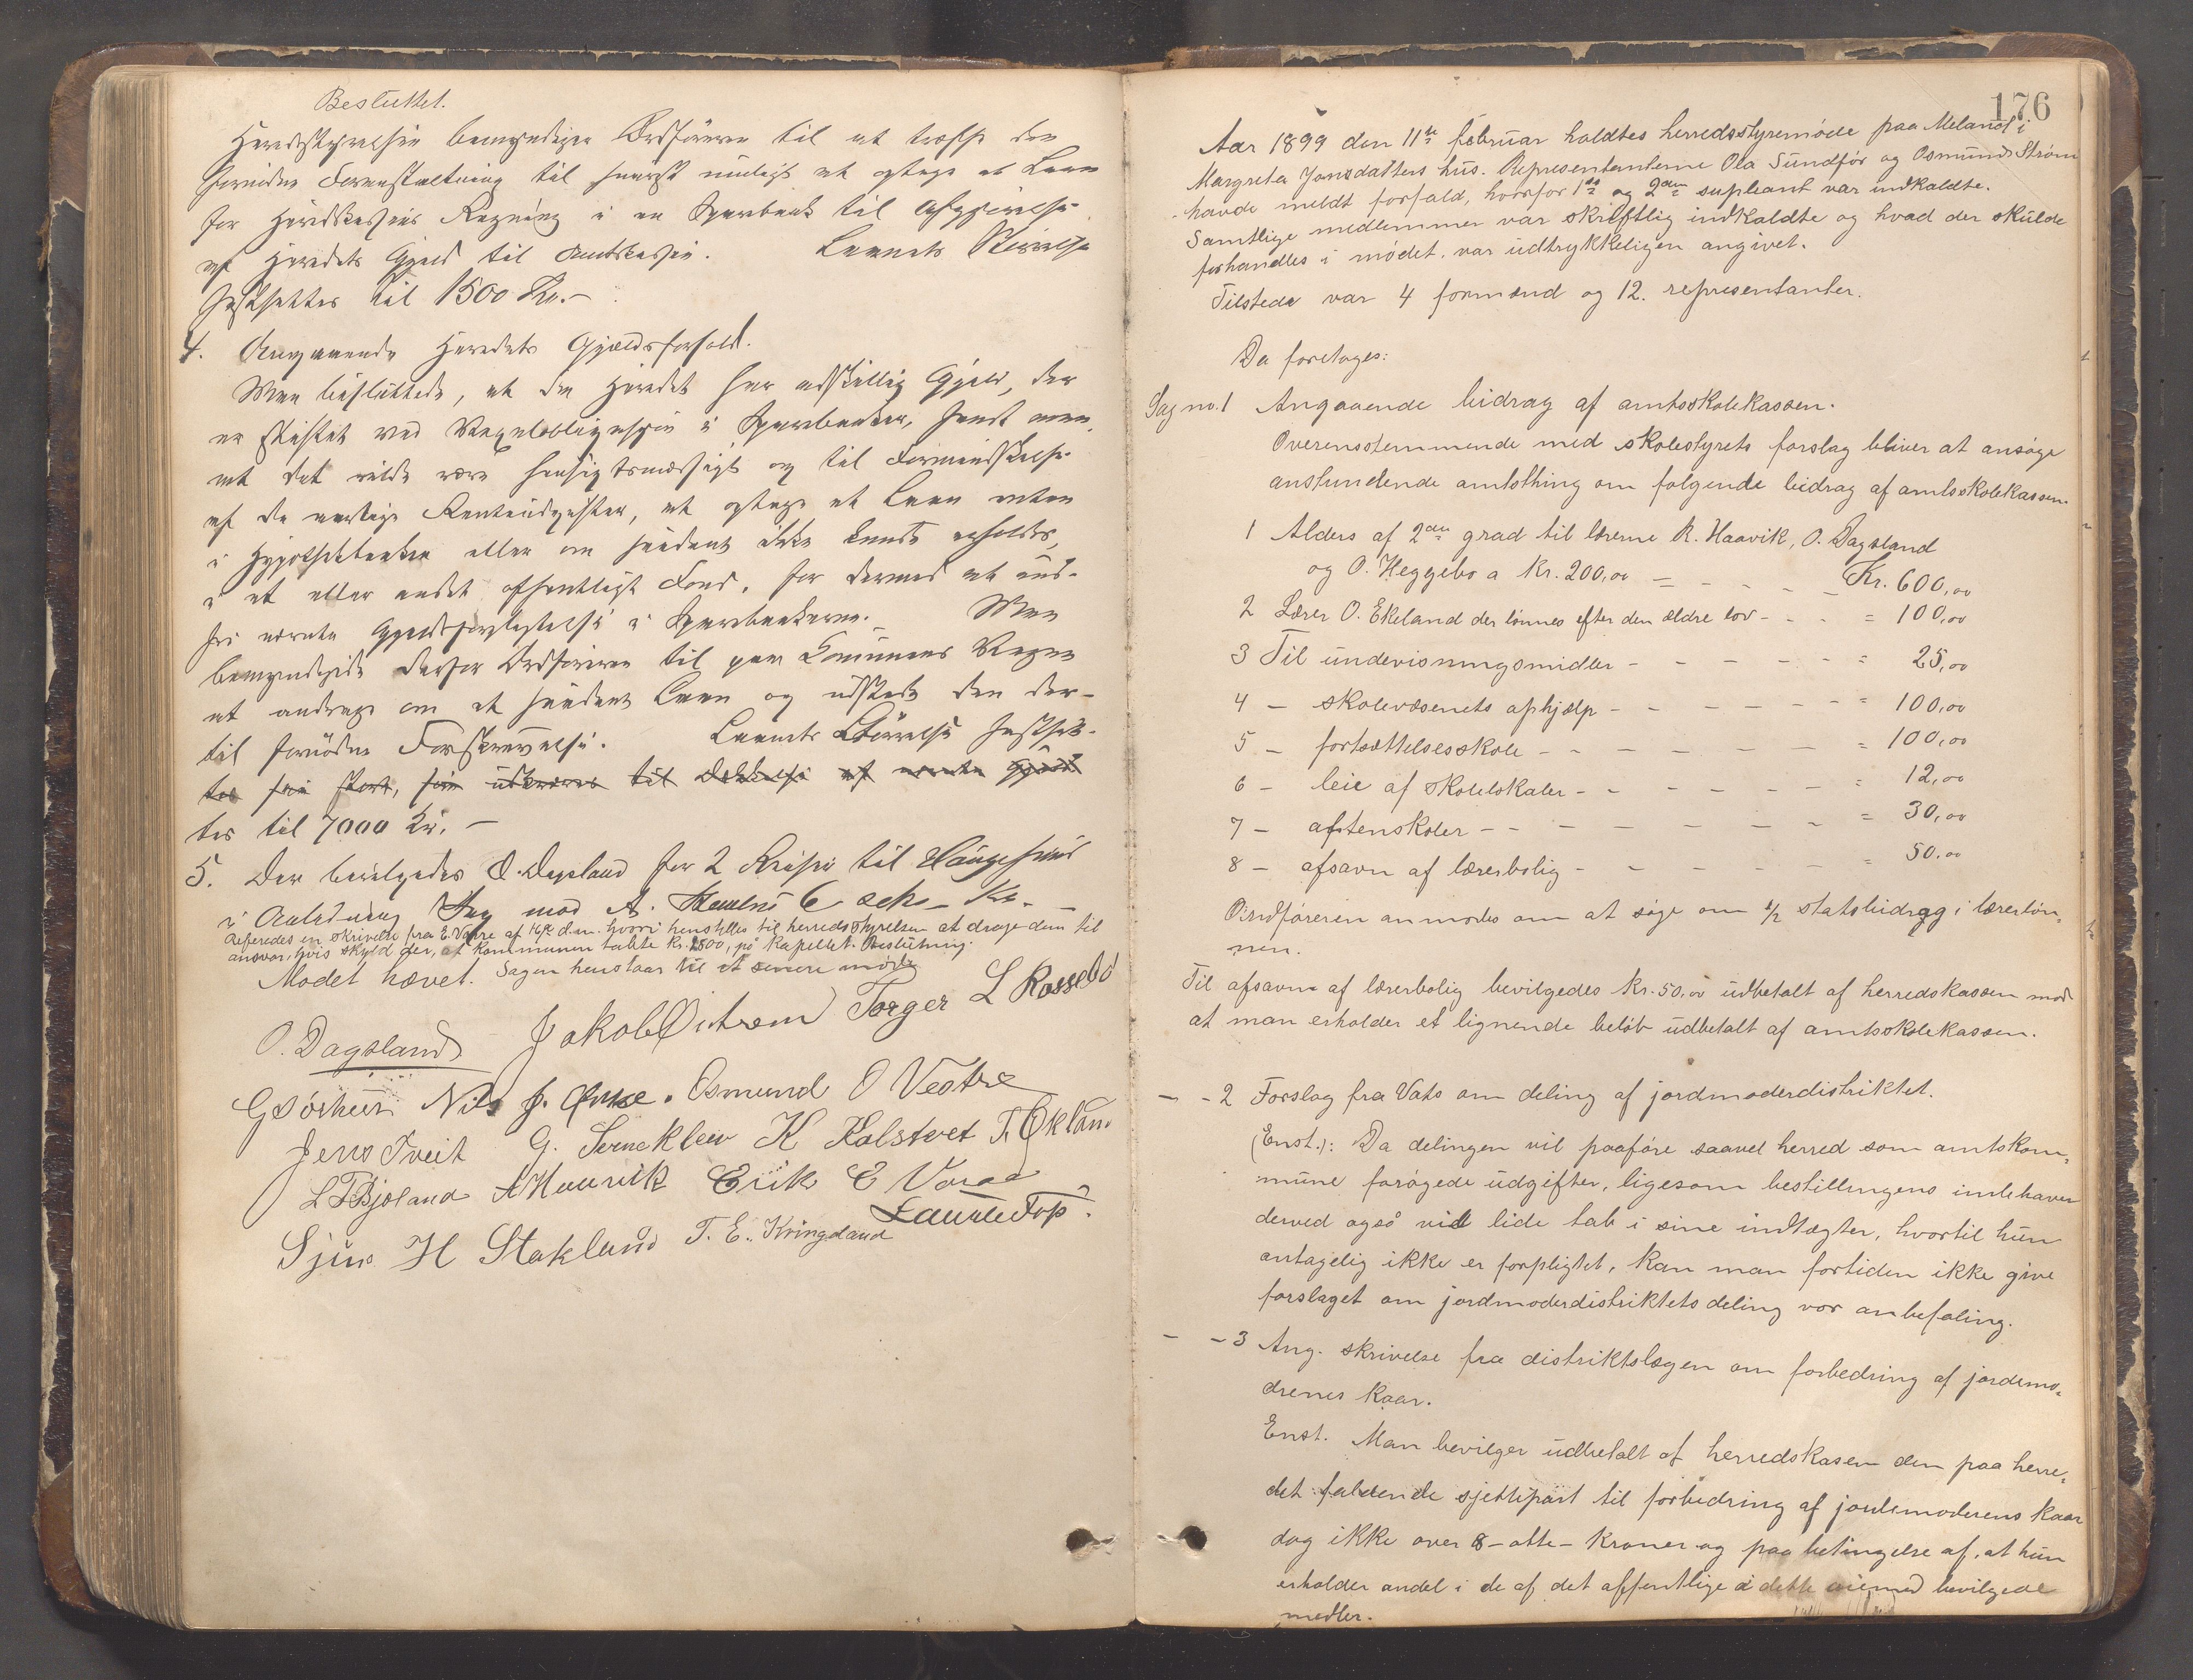 Besluttet.
Herredsstyrelsen bemyndiger Ordføreren til at træffe den
fornødne Foranstaltning til snarest muligt at optage et Laan
for Herredskassens Regning i en Sparebank til Afgjørelse
af Herredets Gjæld til Amtskassen. Laanets Størrelse
fastsættes til 1500 Kr. –
4. Angaaende Herredets Gjældsforhold.
Man besluttede, at da Herredet har adskillig Gjæld, der
er stiftet ved Vexelobligasjon i Sparebanker, fandt man,
at det vilde være hensigtsmæssigt og til Formindskelse
af de aarlige Renteudgifter, at optage et Laan enten
i Hypothekbanken eller om saadant ikke kunde erholdes,
i et eller andet offentligt Fond, for dermed at ind-
fri nævnte Gjældsforpligtelse i Sparebankerne. – Man
bemyndigede derfor Ordføreren til paa Kommunens Vegne
at andrage om et saadant Laan og udstede den der-
til fornødne Forskrivelse. Laanets Størrelse fastsæt-
tes saa stort, som udkræves til Dækkelse af nævnte Gjæld
tes til 7000 Kr. –
5. Der bevilgedes O. Dagsland for 2 Reiser til Haugesund
i Anledning Sag mod A. 6 seks – Kr. –
Refereredes en skrivelse fra E. Vaare af d.m. hvori henstilles til herredsstyrelsen at drage dem til
ansvar, hvis skyld der, at kommunen tabte kr. 1500, på Kapellet. Beslutning:
Mødet hævet. Sagen henstaar til et senere møde
O. Dagsland Jakob Østrem Torger L Rossebø
G Sørhus Nils J. Østrem Osmund O Vestre
Jens Tveit G. Serneklew K Kolstvet T. Økland
L T Bjoland A Haavik Erik E Vaare
Sjur H Stakland T. E. Kringeland Laurits Fos.
176
Aar 1899 den 11te februar holdtes herredsstyremøde paa Meland i
Margreta Jonsdatters hus. Representanterne Ola Sundfør og Osmund Strøm
havde meldt forfald, hvorfor 1ste og 2den supleant var indkaldte.
Samtlige medlemmer var skriftlig indkaldte og hvad der skulde
forhandles i mødet, var udtrykkeligen angivet.
Tilstede var 4 formænd og 12. representanter.
Da foretoges:
Sag no. 1 Angaaende bidrag af amtsskolekassen.
Overensstemmende med skolestyrets forslag bliver at ansøge
anstundende amtsthing om følgende bidrag af amtsskolekassen.
1 Alders af 2den grad til lærerne R. Haavik, O. Dagsland
og O. Heggebø a Kr. 200,00 – – – – Kr. 600,00
2 Lærer O. Ekeland der lønnes efter den ældre lov – – – = 100,00
3 Til undevisningsmidler – – – – – = 25,00
4 – skolevæsenets ophjælp – – – – – – = 100,00
5 – fortsættelsesskole – – – – – – = 100,00
6 – leie af skolelokaler – – – – – – = 12,00
7 – aftenskoler – – – – – – – = 30,00
8 – afsavn af lærerbolig – – – – – = 50,00
Ordføreren anmodes om at søge om 1/2 statsbidrag i lærerløn=
nen.
Til afsavn af lærerbolig bevilgedes kr. 50,00 udbetalt af herredskassen mod
at man erholder et lignende beløb udbetalt af amtsskolekassen.
– – 2 Forslag fra Vats om deling af jordmoderdistriktet.
(Enst.): Da delingen vil paaføre saavel herred som amtskom=
mune forøgede udgifter, ligesom bestillingens indehaver
derved også vil lide tab i sine indtægter, hvortil hun
antagelig ikke er forpligtet, kan man fortiden ikke give
forslaget om jordmoderdistriktets deling vor anbefaling.
– – 3 Ang. skrivelse fra distriktslægen om forbedring af jordemo=
drenes kaar.
Enst. Man bevilger udbetalt af herredskasen den paa herre=
det faldende sjettepart til forbedring af jordemoderens kaar
dog ikke over 8 – otte – kroner og paa betingelse af, at hun
erholder andel i de af det offentlige i dette øiemed bevilgede
midler.